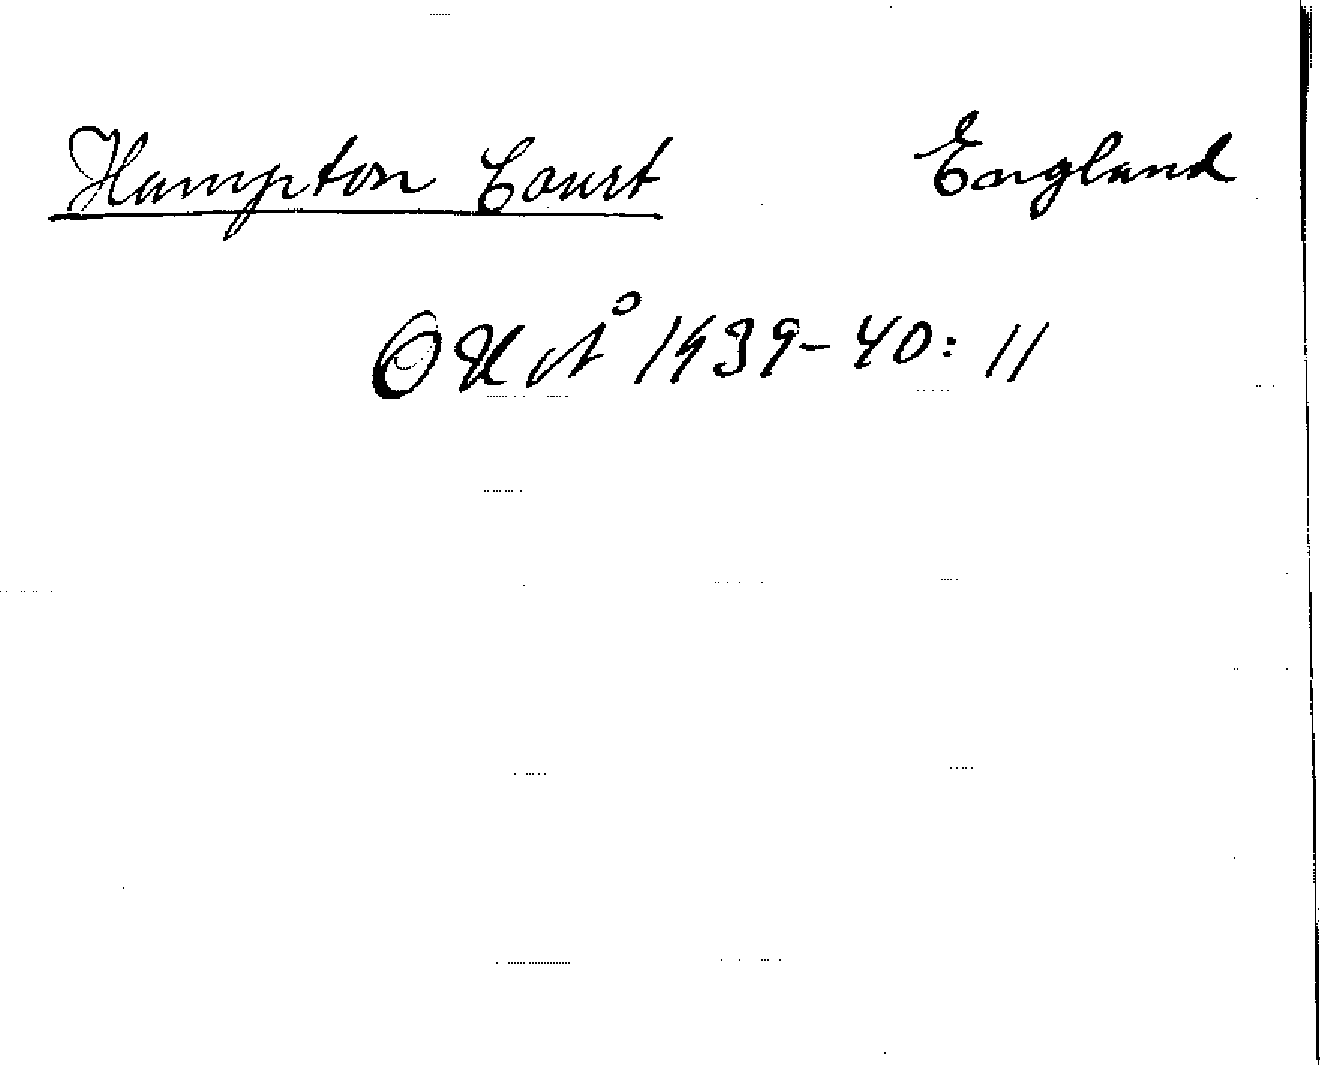 Hampton Court England
OKÅ 1939-40: 11